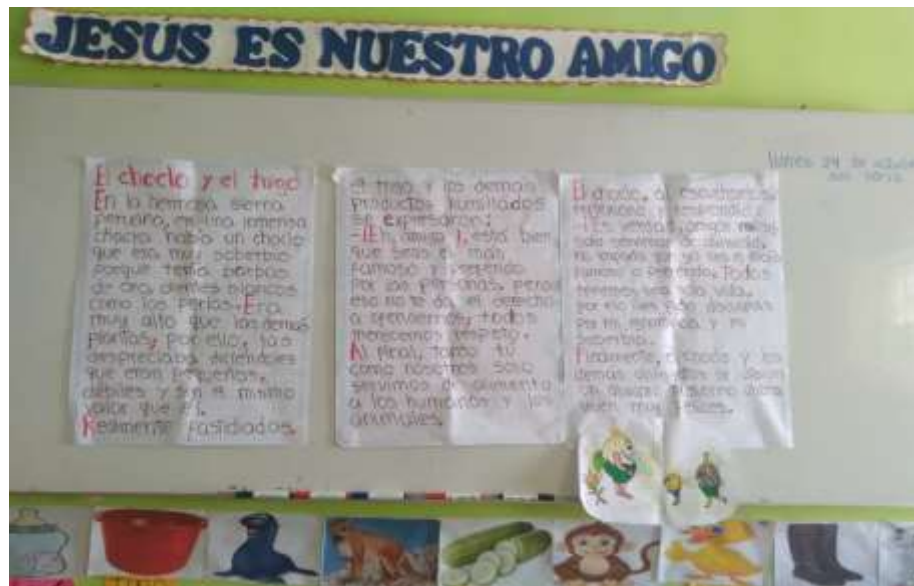 JESÚS ES NUESTRO AMIGO
El choclo y el trigo
En la hermosa sierra
peruana, en una inmensa
chacra había un choclo
que era muy soberbio
porque tenía barbas
de oro, dientes blancos
como las perlas. Era
muy alto que las demás
plantas, por ello, las
despreciaba diciéndoles
que eran pequeños,
débiles y sin el mismo
valor que él.
Realmente fastidiados,
el trigo y los demás
productos humillados
se expresaron:
-¡Eh, amigo!, está bien
que seas el más
famoso y preferido
por las personas, pero
eso no te da el derecho
a ofendernos, todos
merecemos respeto.
Al final, tanto tú
como nosotros solo
servimos de alimento
a los humanos y los
animales.
El choclo, al escucharlos,
y respondió:
-¡Es verdad!, porque
solo servimos de alimento,
no importa que yo sea el más
famoso o preferido. Todos
tenemos una vida,
por eso les pido disculpas
por mi y mi
soberbia.
Finalmente, el choclo y los
demás se dieron
un abrazo
muy felices.
lunes 24 de